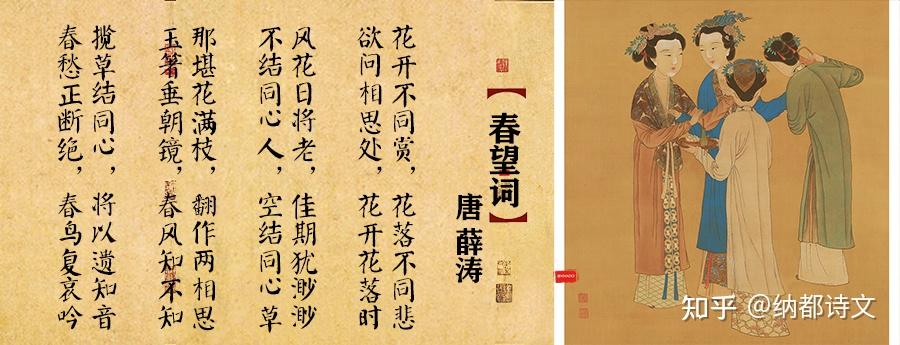 【春望词】
唐 薛涛
花开不同赏，花落不同悲
欲问相思处，花开花落时
风花日将老，佳期犹渺渺
不结同心人，空结同心草
那堪花满枝，翻作两相思
玉箸垂朝镜，春风知不知
揽草结同心，将以遗知音
春愁正断绝，春鸟复哀吟
知乎 @纳都诗文